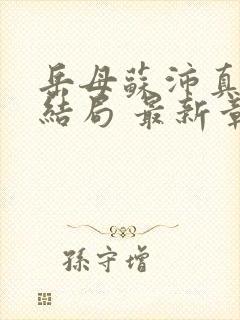 岳母蘇沛真
結局 最新章
孫守增